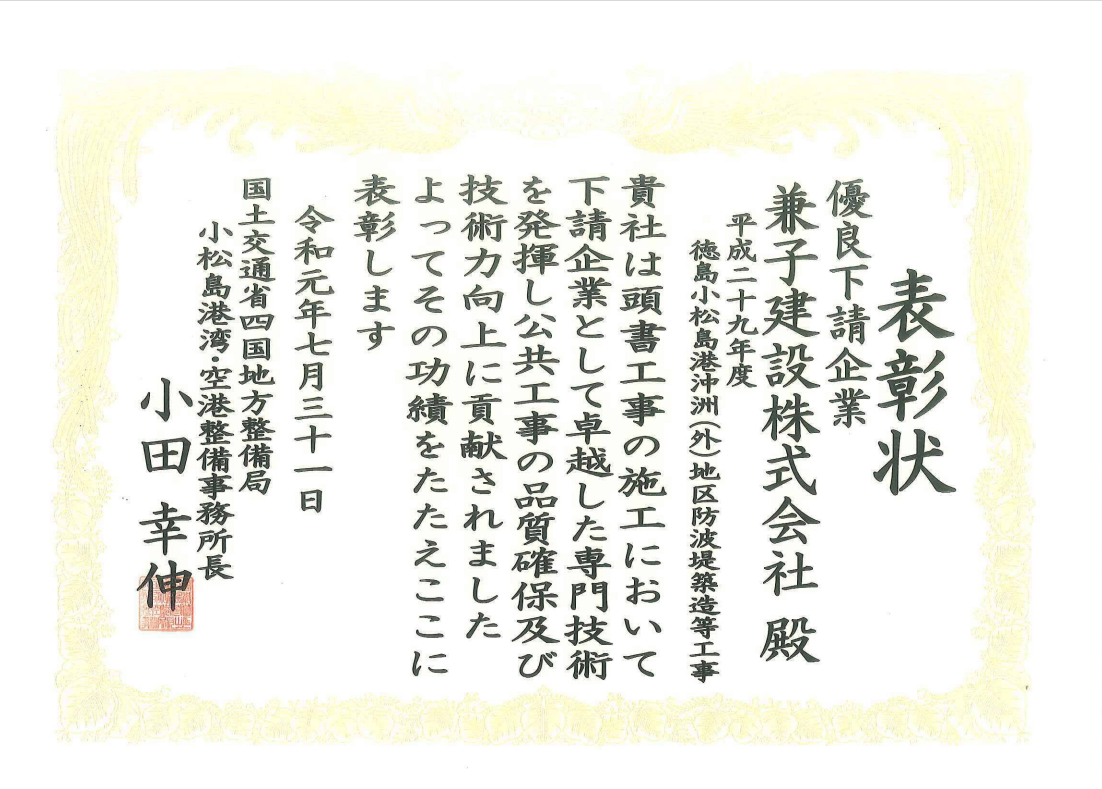 表彰状
優良下請企業
兼子建設株式会社 殿
平成二十九年度
徳島小松島港沖洲(外)地区防波堤築造等工事
貴社は頭書工事の施工において
下請企業として卓越した専門技術
を発揮し公共工事の品質確保及び
技術力向上に貢献されました
よってその功績をたたえここに
表彰します
令和元年七月三十一日
国土交通省四国地方整備局
小松島港湾・空港整備事務所長
小田 幸伸